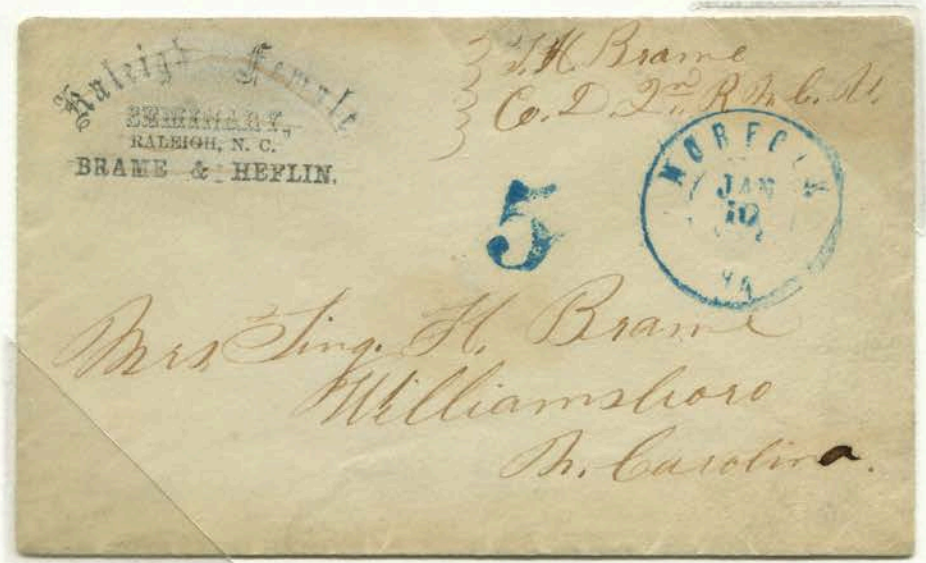 Raleigh Female
SEMINARY,
RALEIGH, N. C.
BRAME & HEFLIN.
T. H. Brame
Co. D. 2nd R N C. V.
NORFOLK
JAN
10
VA
5
Mrs Ting. H. Brame
Williamsboro
N. Carolina.